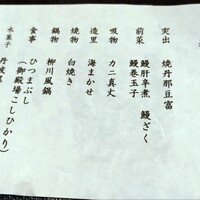 突出　焼丹那豆富
前菜　鰻肝辛煮　鰻ざく
鰻巻玉子
吸物　カニ真丈
造里　海まかせ
焼物　白焼き
鍋物　柳川風鍋
食事　ひつまぶし
（御殿場こしひかり）
水菓子　丹波